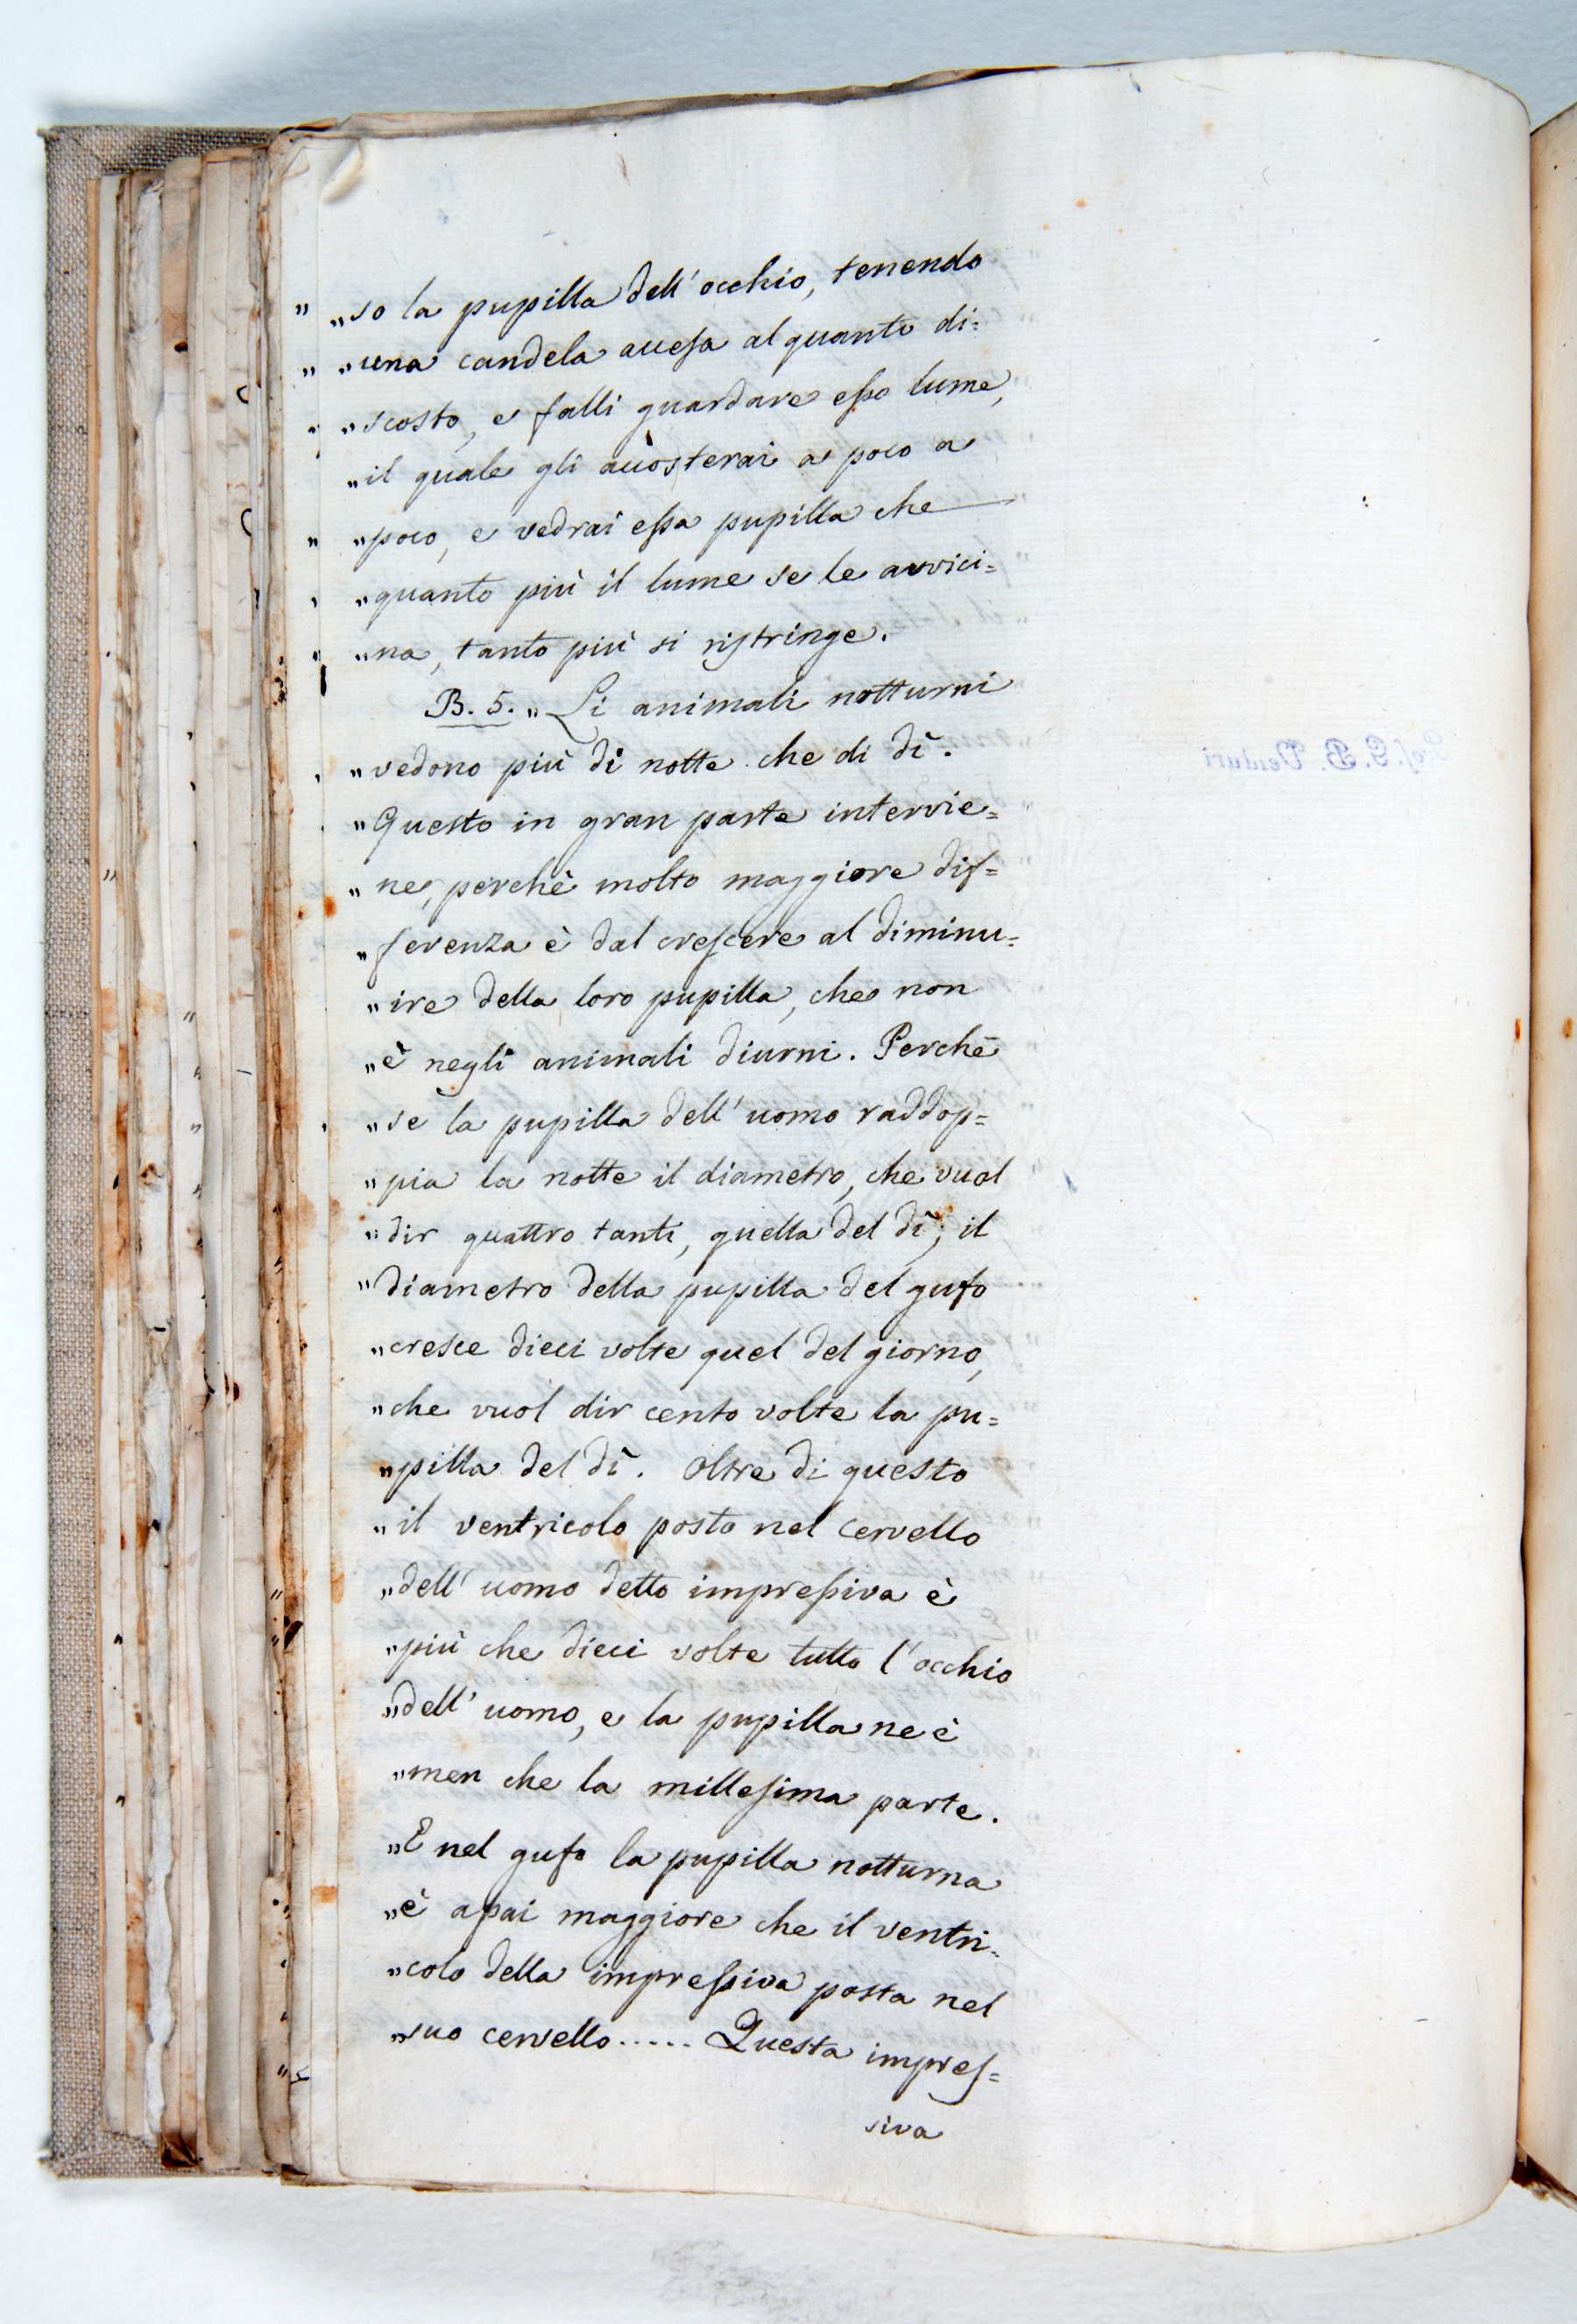 „so la pupilla dell'occhio, tenendo
„una candela accesa alquanto di=
„scosto, e falli guardare esso lume,
„il quale gli accosterai a poco a
„poco, e vedrai essa pupilla che
„quanto più il lume se le avvici=
„na, tanto più si ristringe.
B. 5. „Li animali notturni
„vedono più di notte che di dì.
„Questo in gran parte intervie=
„ne, perchè molto maggiore dif=
„ferenza è dal crescere al diminu=
„ire della loro pupilla, che non
„è negli animali diurni. Perchè
„se la pupilla dell'uomo raddop=
„pia la notte il diametro, che vuol
„dir quattro tanti, quella del dì; il
„diametro della pupilla del gufo
„cresce dieci volte quel del giorno,
„che vuol dir cento volte la pu=
„pilla del dì. Oltre di questo
„il ventricolo posto nel cervello
„dell'uomo detto impressiva è
„più che dieci volte tutto l'occhio
„dell'uomo, e la pupilla ne è
„men che la millesima parte.
„E nel gufo la pupilla notturna
„è assai maggiore che il ventri=
„colo della impressiva posta nel
„suo cervello..... Questa impres=
siva
Prof. G. B. Venturi